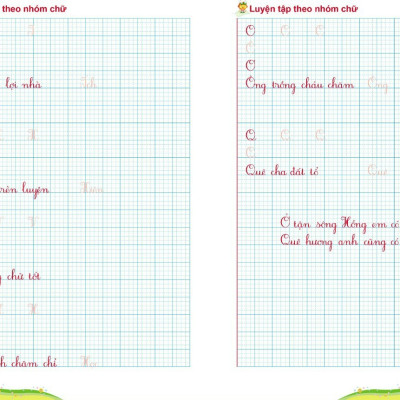 theo nhóm chữ
lợi nhà Ích
rèn luyện Hiền
chữ tốt
chăm chỉ
Luyện tập theo nhóm chữ
O O O
O
O
Ông trồng cháu chăm Ông
Q
Quê cha đất tổ Quê
Ở tận sông Hồng em có
Quê hương anh cũng có